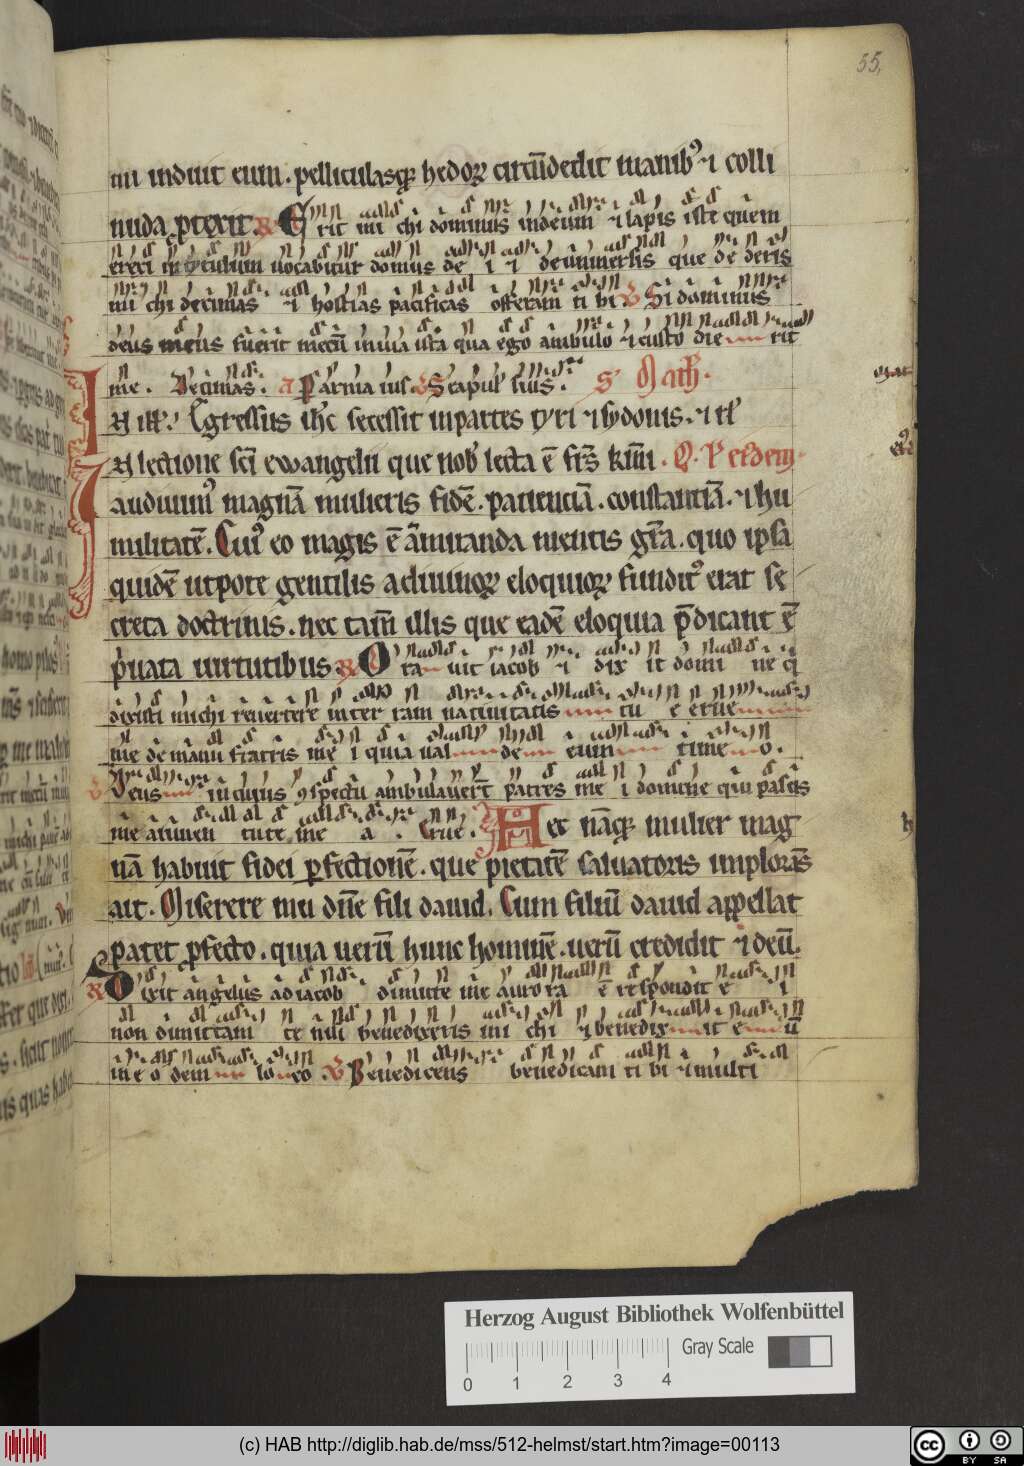 55.
ni induit eum. pelliculasq; hedoꝝ circūdedit manibꝰ ⁊ colli
nuda ꝓtexit. ℞ Erit mi chi dominus indeum ⁊ lapis iste quem
erexi in tytulum vocabitur domus de i ⁊ deuniuersis que de deris
mi chi decimas ⁊ hostias pacificas offeram ti bi ℣ Si dominus
deus meus fuerit mecū inuia ista qua ego ambulo ⁊ custo die rit
me. Decimas. a Parma ius. Scapul' suis. S' Math.
IN ill'. Egressus ihc secessit inpartes tyri ⁊ sydonis. ⁊ rł
IN lectione sci ewangelii que nob' lecta ē frs kmi. Q. P eidem.
audiuimꝰ magnā mulieris fidē. patienciā. constanciā. ⁊ hu
militatē. Cuiꝰ eo magis ē āmiranda mentis gr̄a. quo ipsa
quidē utpote gentilis adiuinoꝝ eloquioꝝ funditꝰ erat se
creta doctrinis. nec tam̄ illis que eadē eloquia p̄dicant ē
p̄uata uirtutibus. ℞ Ora uit iacob ⁊ dix it domi ne q
dixisti michi reuertere in ter ram natiuitatis tu e erue
me de manu fratris me i quia ual de eum time o.
Deus incuius ꝯspectu ambulauerūt patres me i domine qui pascis
me aiuuen tute me a . Erue. Hec nāq; mulier mag
nā habuit fidei ꝑfectionē. que pietatē saluatoris implorās
ait. Miserere mei dn̄e fili dauid. Cum filiū dauid appellat
patet ꝓfecto. quia uerū hunc hominē. uerū credidit ⁊ deū.
℞ Dixit angelus ad iacob dimitte me auro ra ē respondit e i
non dimittam te nisi benedixeris mi chi ⁊ benedix it e ū
in e o dem lo co ℣ Benedicens benedicam ti bi ⁊ multi
Herzog August Bibliothek Wolfenbüttel
Gray Scale
0 1 2 3 4
(c) HAB http://diglib.hab.de/mss/512-helmst/start.htm?image=00113
cc BY SA